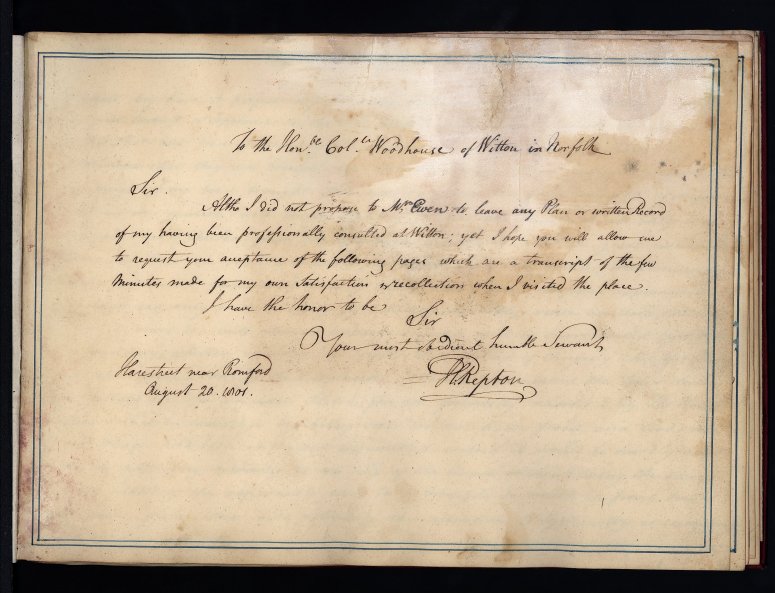 To the Hon.ble Col.el Woodhouse of Witton in Norfolk
Sir.
Altho I did not propose to Mr. Ewen to leave any Plan or written Record
of my having been professionally consulted at Witton; yet I hope you will allow me
to request your acceptance of the following pages which are a transcript of the few
Minutes made for my own Satisfaction & recollection when I visited the place.
I have the honor to be
Sir
Your most obedient humble Servant
HRepton
Harestreet near Romford
August 20. 1801.